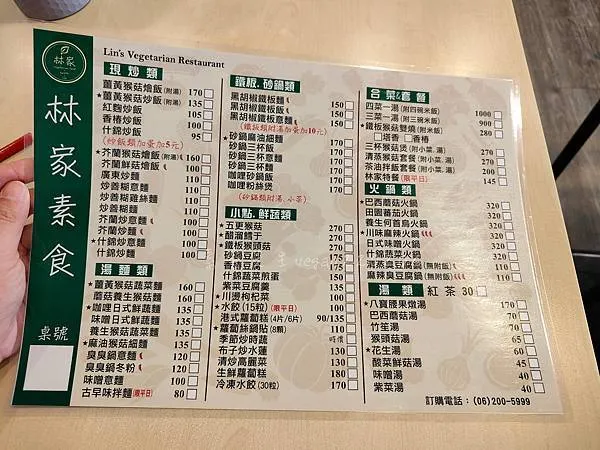 林家
林家素食
桌號
Lin's Vegetarian Restaurant
現炒類
薑黃猴菇燴飯(附湯) 170
★薑黃猴菇炒飯(附湯) 135
紅麴炒飯 105
香椿炒飯 100
什錦炒飯 95
(炒飯類加蛋加5元)
★芥蘭猴菇燴飯(附湯) 160
芥蘭鮮菇燴飯 110
廣東炒麵 110
炒善糊意麵 110
炒善糊雞絲麵 110
炒善糊麵 110
芥蘭炒意麵 110
芥蘭炒麵 110
★什錦炒意麵 110
什錦炒麵 100
湯麵類
★薑黃猴菇蔬菜麵 160
蘑菇養生猴菇麵 160
★咖哩日式鮮蔬麵 135
味噌日式鮮蔬麵 135
養生猴菇蔬菜麵 135
★麻油猴菇細麵 135
臭臭鍋意麵 110
臭臭鍋冬粉 110
味噌意麵 100
古早味拌麵(限平日) 80
鐵板.砂鍋類
黑胡椒鐵板麵 150
黑胡椒鐵板飯 150
黑胡椒鐵板意麵 150
(鐵板類附湯加蛋加10元)
★砂鍋麻油細麵 150
砂鍋三杯飯 150
砂鍋三杯意麵 150
砂鍋三杯麵 150
咖哩砂鍋飯 150
咖哩粉絲煲 150
(砂鍋類附湯.小菜)
小點.鮮蔬類
★五更猴菇 270
★醋溜鱈于 270
★鐵板猴頭菇 270
砂鍋豆腐 175
香椿豆腐 175
什錦蔬菜煎蛋 175
紫菜豆腐羹 135
★川燙枸杞菜 100
★水餃(15粒)(限平日) 100
★港式蘿蔔糕(4片/6片) 90/135
★蘿蔔絲鍋貼(8顆) 110
季節炒時蔬 時價
布子炒水蓮 130
清炒高麗菜 130
生鮮蘿蔔糕 180
冷凍水餃(30粒) 170
合菜&套餐
四菜一湯(附四碗米飯) 1000
三菜一湯(附三碗米飯) 900
★鐵板猴菇雙燒(附米飯) 280
塔香 香椿
三杯猴菇煲(附小菜.湯)
清蒸猴菇套餐(附小菜.湯)
茶油拌飯套餐(附小菜.湯)
林家特餐(限平日) 145
火鍋類
★巴西蘑菇火鍋 320
田園蕃茄火鍋 320
養生何首烏火鍋 320
★川味麻辣火鍋 320
★日式味噌火鍋
什錦蔬菜火鍋
清蒸臭豆腐鍋(無附飯)
★麻辣臭豆腐鍋(無附飯)
湯類 紅茶 30
★八寶腰果燉湯 170
巴西蘑菇湯
竹笙湯
猴頭菇湯
★花生湯
酸菜鮮菇湯
味噌湯 40
紫菜湯 40
訂購電話：(06)200-5999